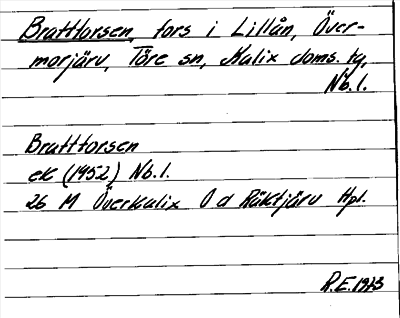 Brattforsen, fors i Lillån, Över-
morjärv, Töre sn, Kalix doms. hg,
Nb.l.
Brattforsen
ek (1952) Nb.l.
26 M Överkalix O d Räktjärv Hpl.
R.E. 1973